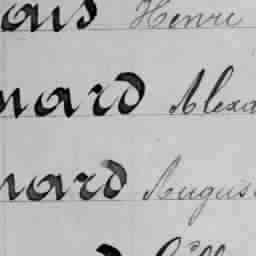 ais Henri
nard Alexa
nard Augus